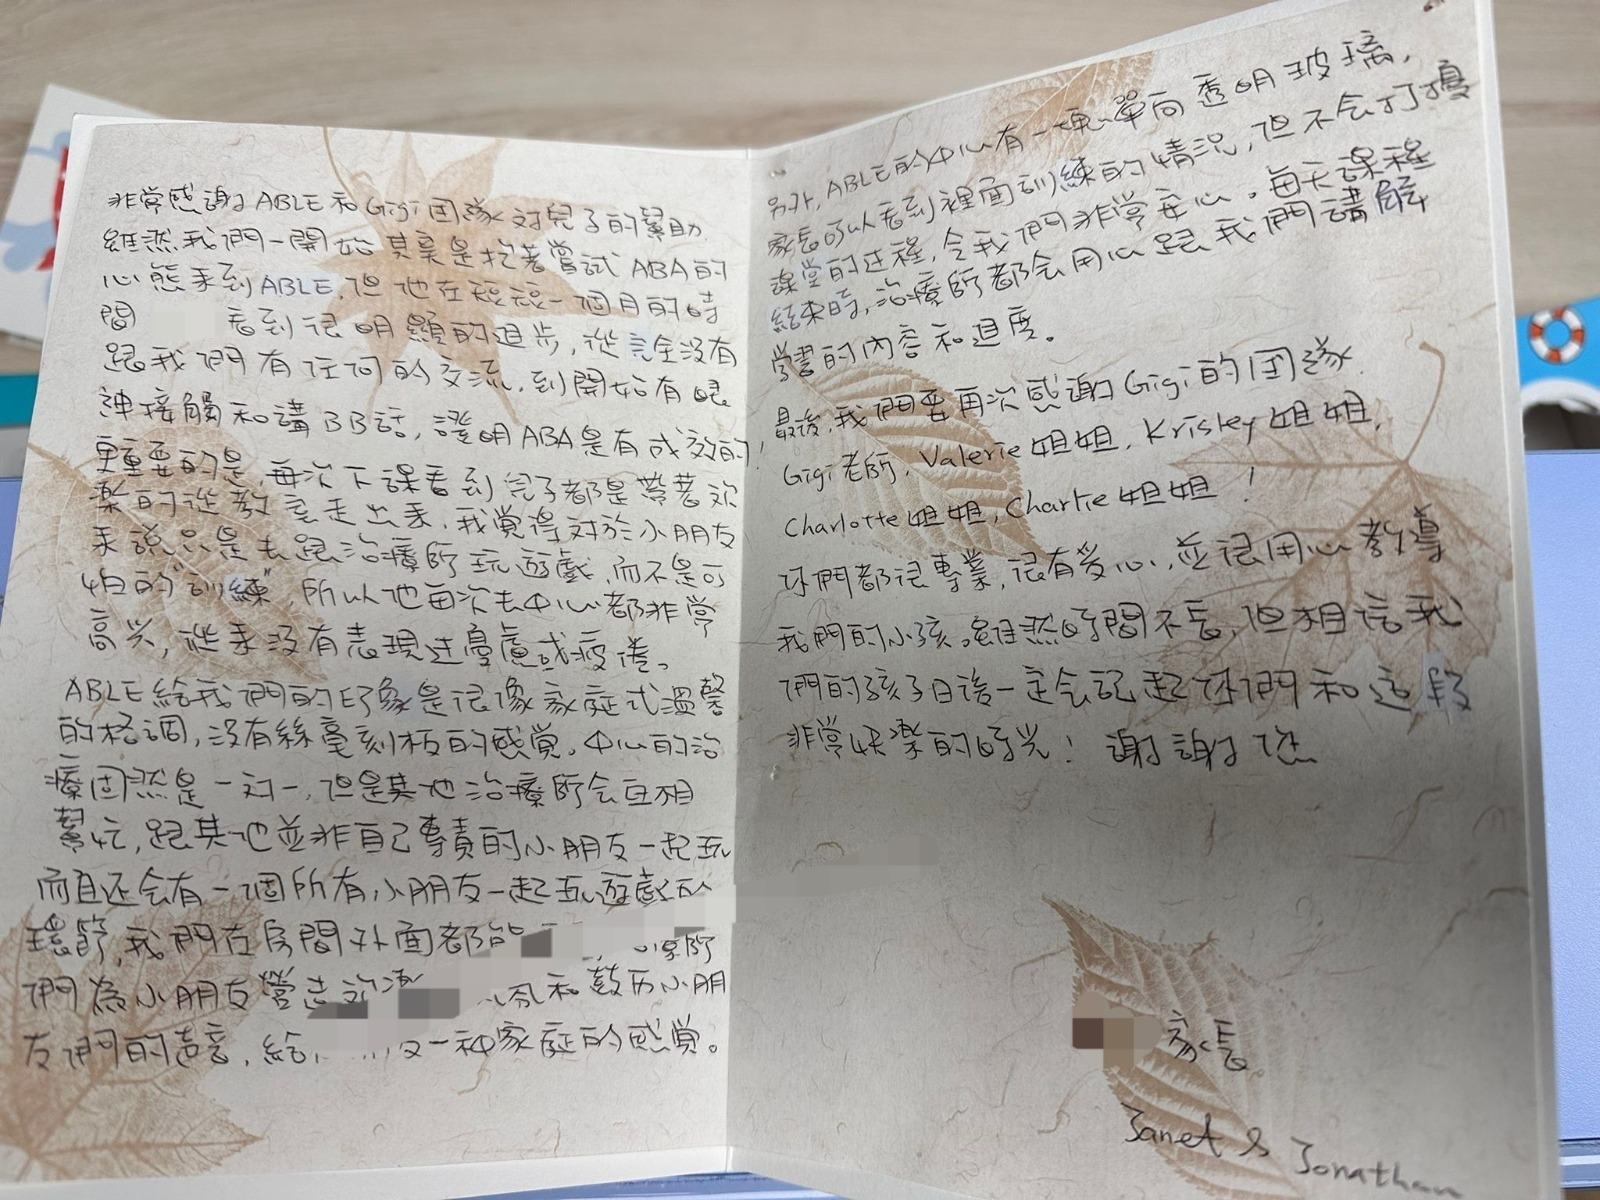 非常感謝ABLE和Gigi團隊对兒子的幫助
雖然我們一開始其實是抱著嘗試ABA的
心態来到ABLE,但他在短短一個月的時
間 看到很明顯的進步,從完全没有
跟我們有任何的交流,到開始有眼
神接觸和講BB話,證明ABA是有成效的!
更重要的是,每次下課看到兒子都是帶著欢
樂的從教室走出来,我覺得对於小朋友
来說只是去跟治療師玩遊戲,而不是可
怕的"訓練",所以他每次去中心都非常
高兴,從来没有表現过憂慮或疲倦。
ABLE給我們的印象是很像家庭式溫馨
的格調,没有絲毫刻板的感覚,中心的治
療固然是一对一,但是其他治療師会互相
幫忙,跟其他並非自己專責的小朋友一起玩
而且还会有一個所有小朋友一起玩遊戲的
環節,我們在房間外面都能 師
們為小朋友營造欢 氛和鼓历小朋
友們的声音,給 一种家庭的感覚。
另外,ABLE的中心有一塊單向透明玻璃,
家長可以看到裡面訓練的情況,但不会打擾
課堂的进程,令我們非常安心。每天課程
結束時,治療師都会用心跟我們講解
学習的內容和進度。
最後,我們要再次感謝Gigi的团隊
Gigi老師,Valerie姐姐,Krisley姐姐,
Charlotte姐姐,Charlie姐姐!
你們都很專業,很有爱心,並很用心教導
我們的小孩。雖然時間不長,但相信我
們的孩子日後一定会記起你們和这段
非常快樂的時光!謝謝您
家長
Janet & Jonathan